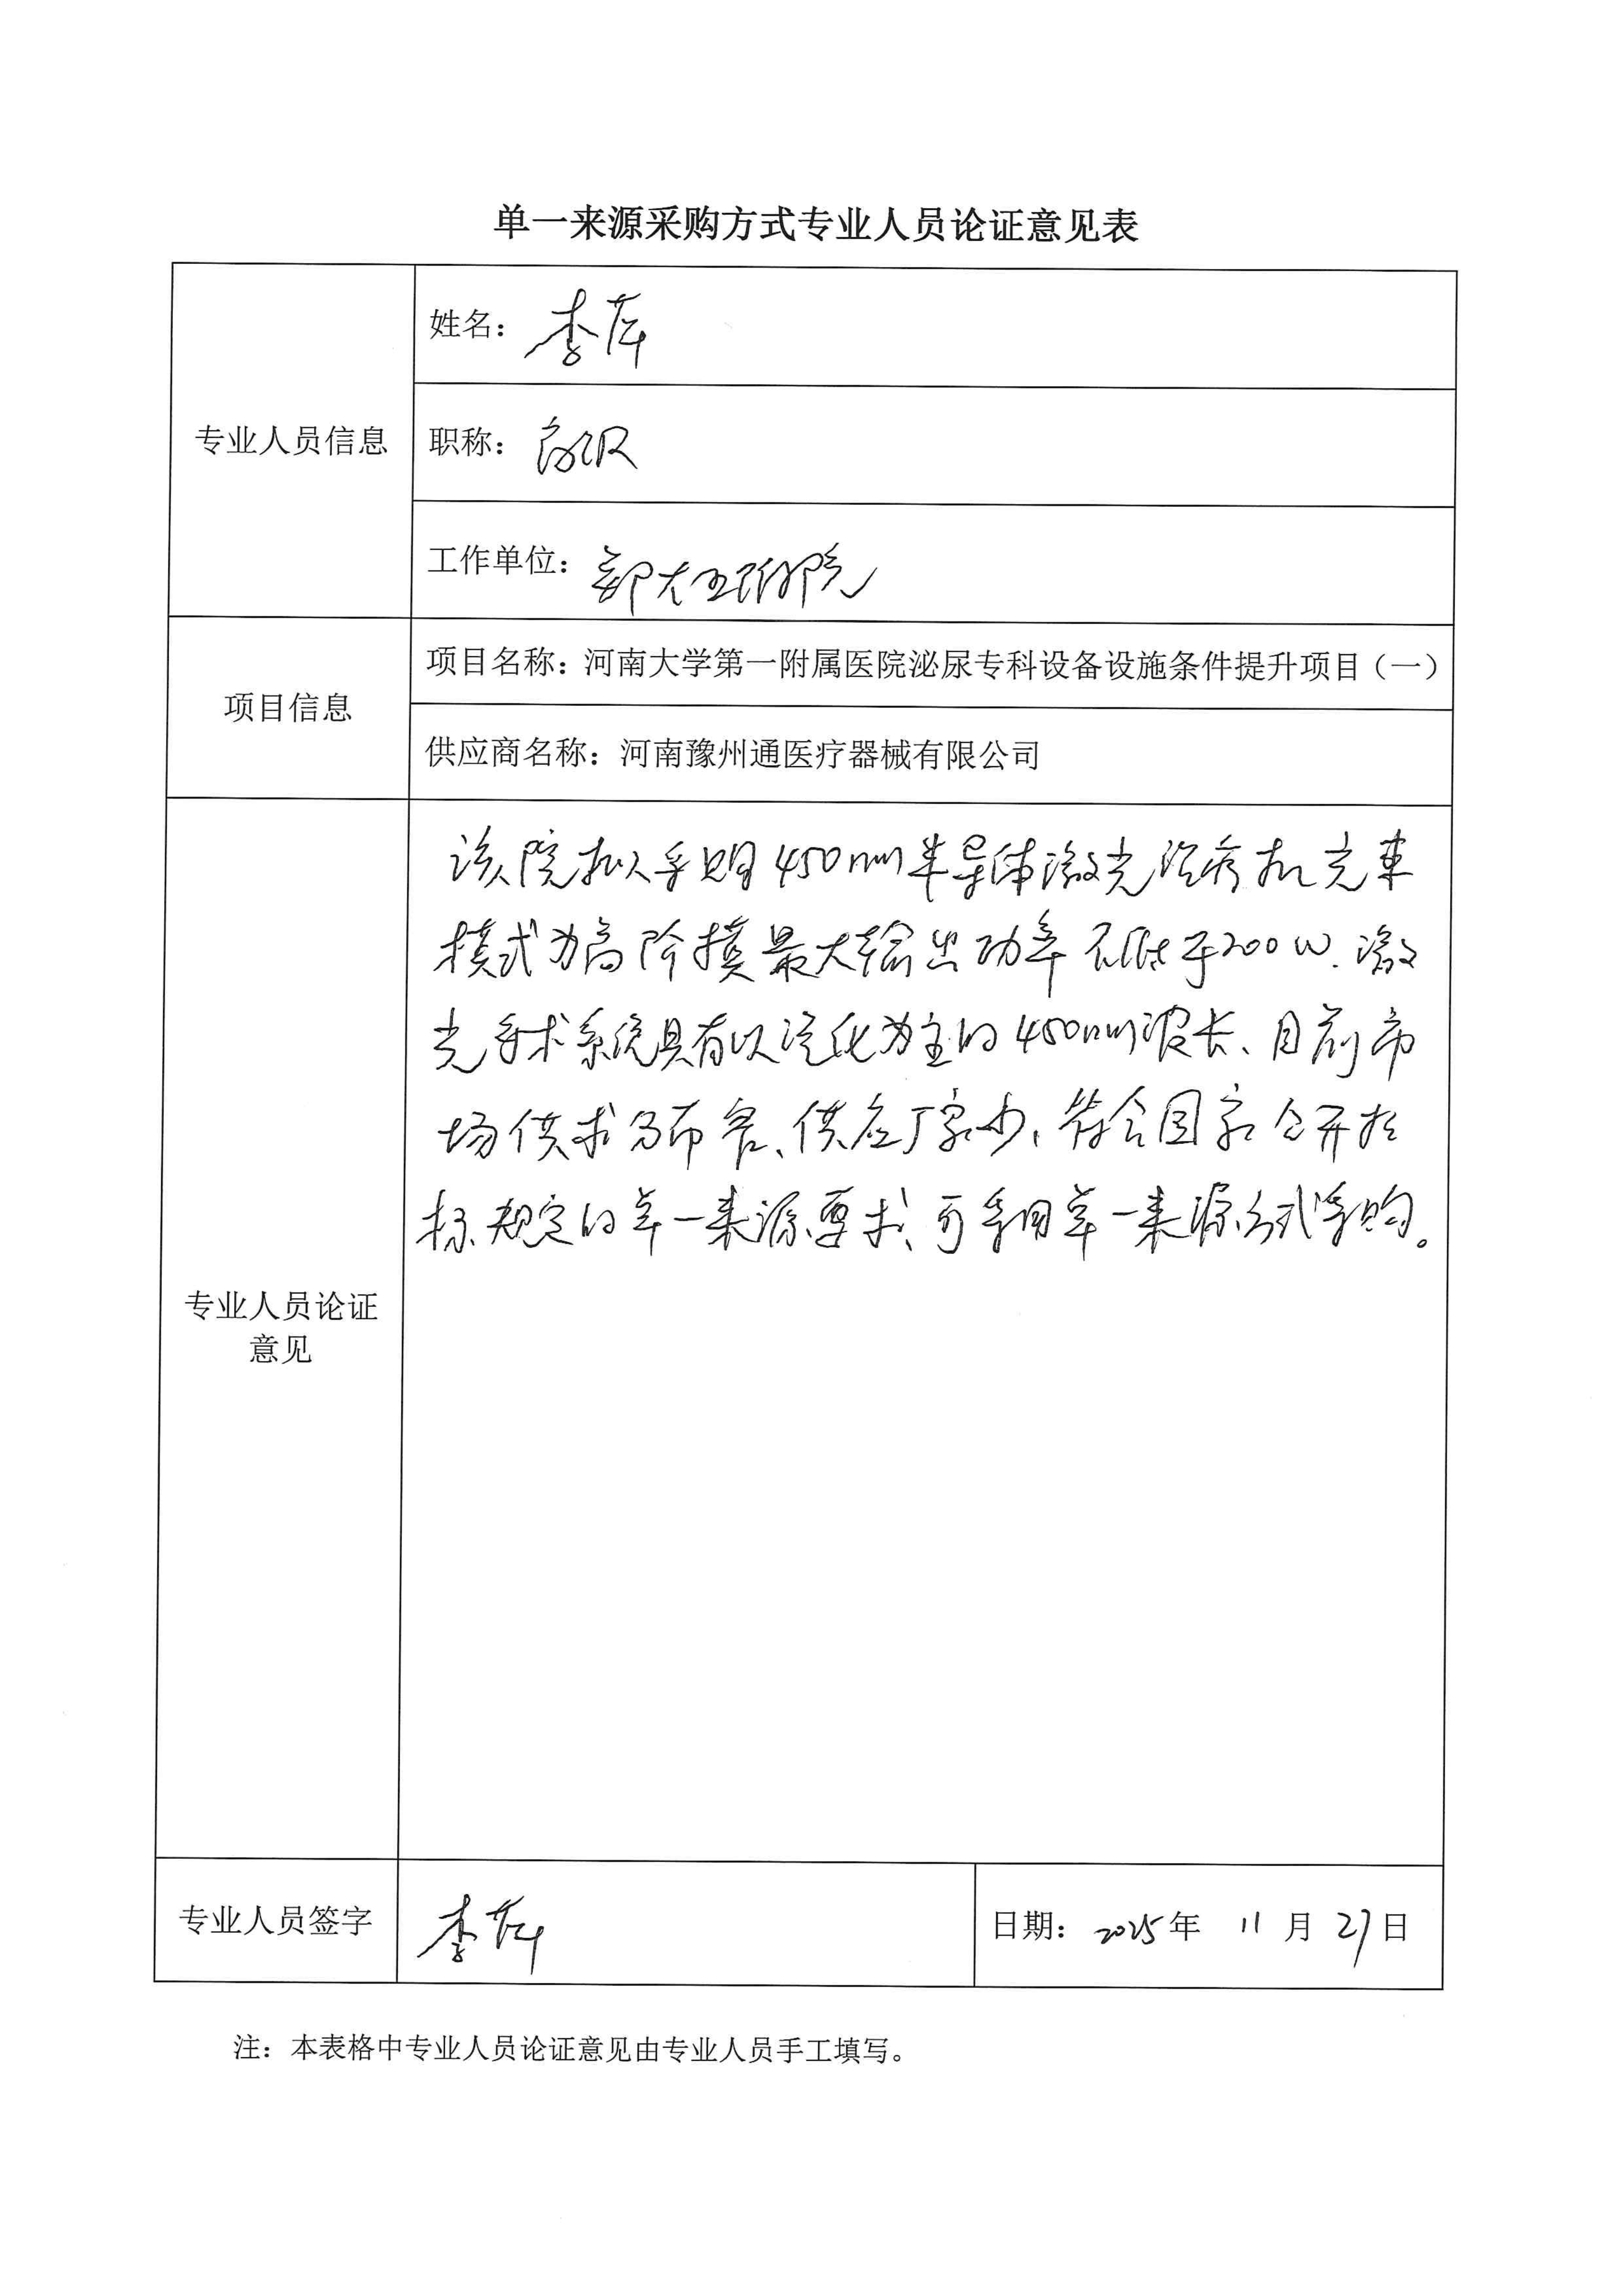 单一来源采购方式专业人员论证意见表
专业人员信息
姓名：李萍
职称：高级
工作单位：郑大五附院
项目信息
项目名称：河南大学第一附属医院泌尿专科设备设施条件提升项目（一）
供应商名称：河南豫州通医疗器械有限公司
专业人员论证
意见
该院拟采购450nm半导体激光治疗机光束
模式为高阶模最大输出功率不低于200W.激
光手术系统具有以汽化为主的450nm波长、目前市
场供求 、供应厂家少、符合国家公开招
标规定的单一来源要求、可采用单一来源方式采购。
专业人员签字
李萍
日期：2025年 11月27日
注：本表格中专业人员论证意见由专业人员手工填写。